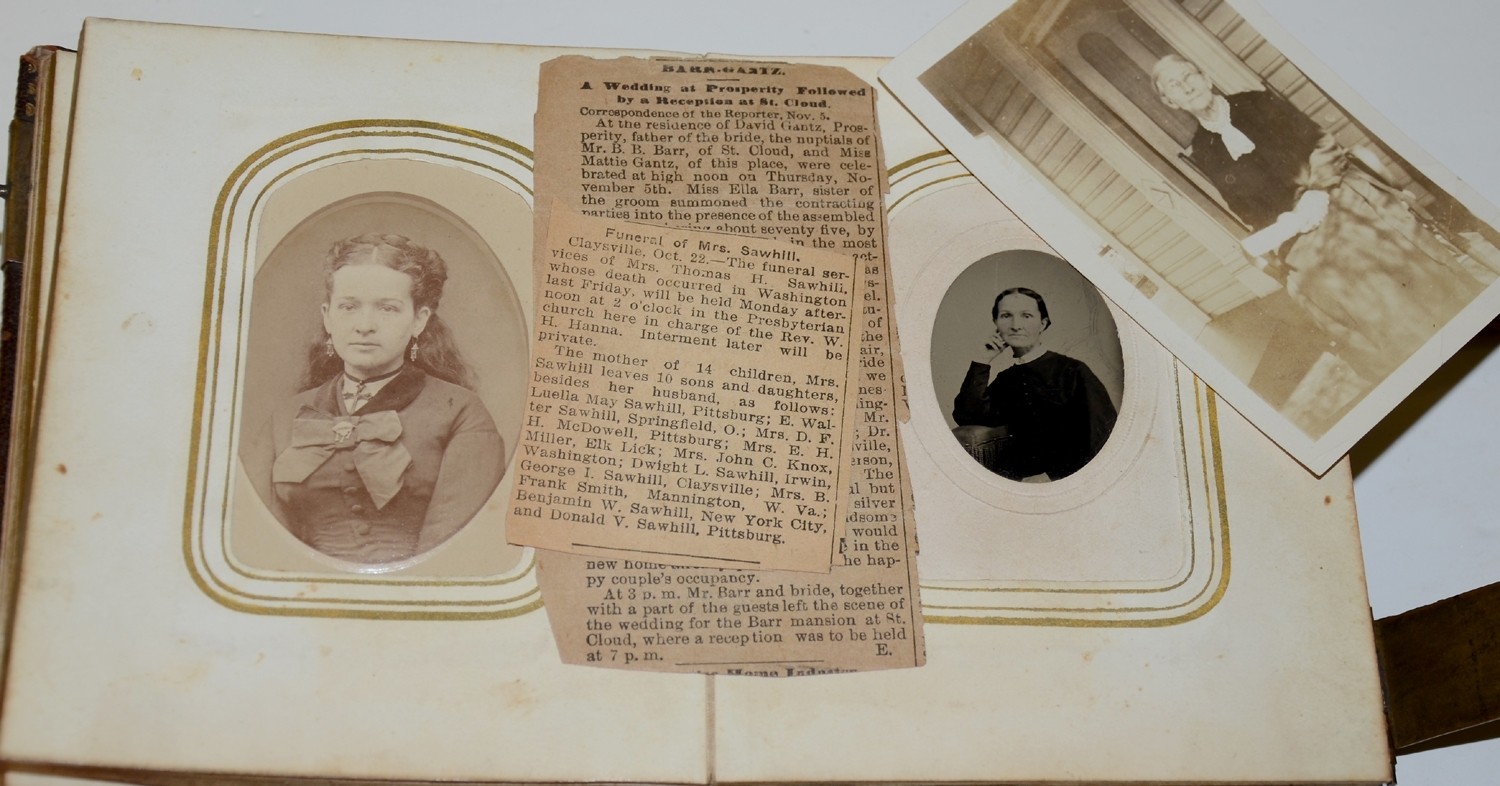 BARR-GANTZ.
A Wedding at Prosperity Followed
by a Reception at St. Cloud.
Correspondence of the Reporter, Nov. 5.
At the residence of David Gantz, Pros-
perity, father of the bride, the nuptials of
Mr. B. B. Barr, of St. Cloud, and Miss
Mattie Gantz, of this place, were cele-
brated at high noon on Thursday, No-
vember 5th. Miss Ella Barr, sister of
the groom summoned the contracting
parties into the presence of the assembled
about seventy five, by
in the most
Funeral of Mrs. Sawhill.
Claysville, Oct. 22.—The funeral ser-
vices of Mrs. Thomas H. Sawhill,
whose death occurred in Washington
last Friday, will be held Monday after-
noon at 2 o'clock in the Presbyterian
church here in charge of the Rev. W.
H. Hanna. Interment later will be
private.
The mother of 14 children, Mrs.
Sawhill leaves 10 sons and daughters,
besides her husband, as follows:
Luella May Sawhill, Pittsburg; E. Wal-
ter Sawhill, Springfield, O.; Mrs. D. F.
H. McDowell, Pittsburg; Mrs. E. H.
Miller, Elk Lick; Mrs. John C. Knox,
Washington; Dwight L. Sawhill, Irwin,
George I. Sawhill, Claysville; Mrs. B.
Frank Smith, Mannington, W. Va.;
Benjamin W. Sawhill, New York City,
and Donald V. Sawhill, Pittsburg.
of
we
Mr.
; Dr.
The
but
silver
would
in the
new home
he hap-
py couple's occupancy.
At 3 p. m. Mr. Barr and bride, together
with a part of the guests left the scene of
the wedding for the Barr mansion at St.
Cloud, where a reception was to be held
at 7 p. m. E.
Home